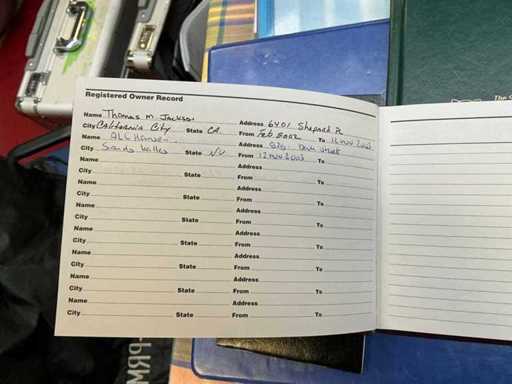 Registered Owner Record
Name Thomas M. Jackson Address 6401 Shepard
City California City State CA. From Feb 2002 To 12 Nov 2003
Name Address
City State NV From 12 Nov 2003 To
Name Address
City State From To
Name Address
City State From To
Name Address
City State From To
Name Address
City State From To
Name Address
City State From To
Name Address
City State From To
Name Address
City State From To
PRM
The